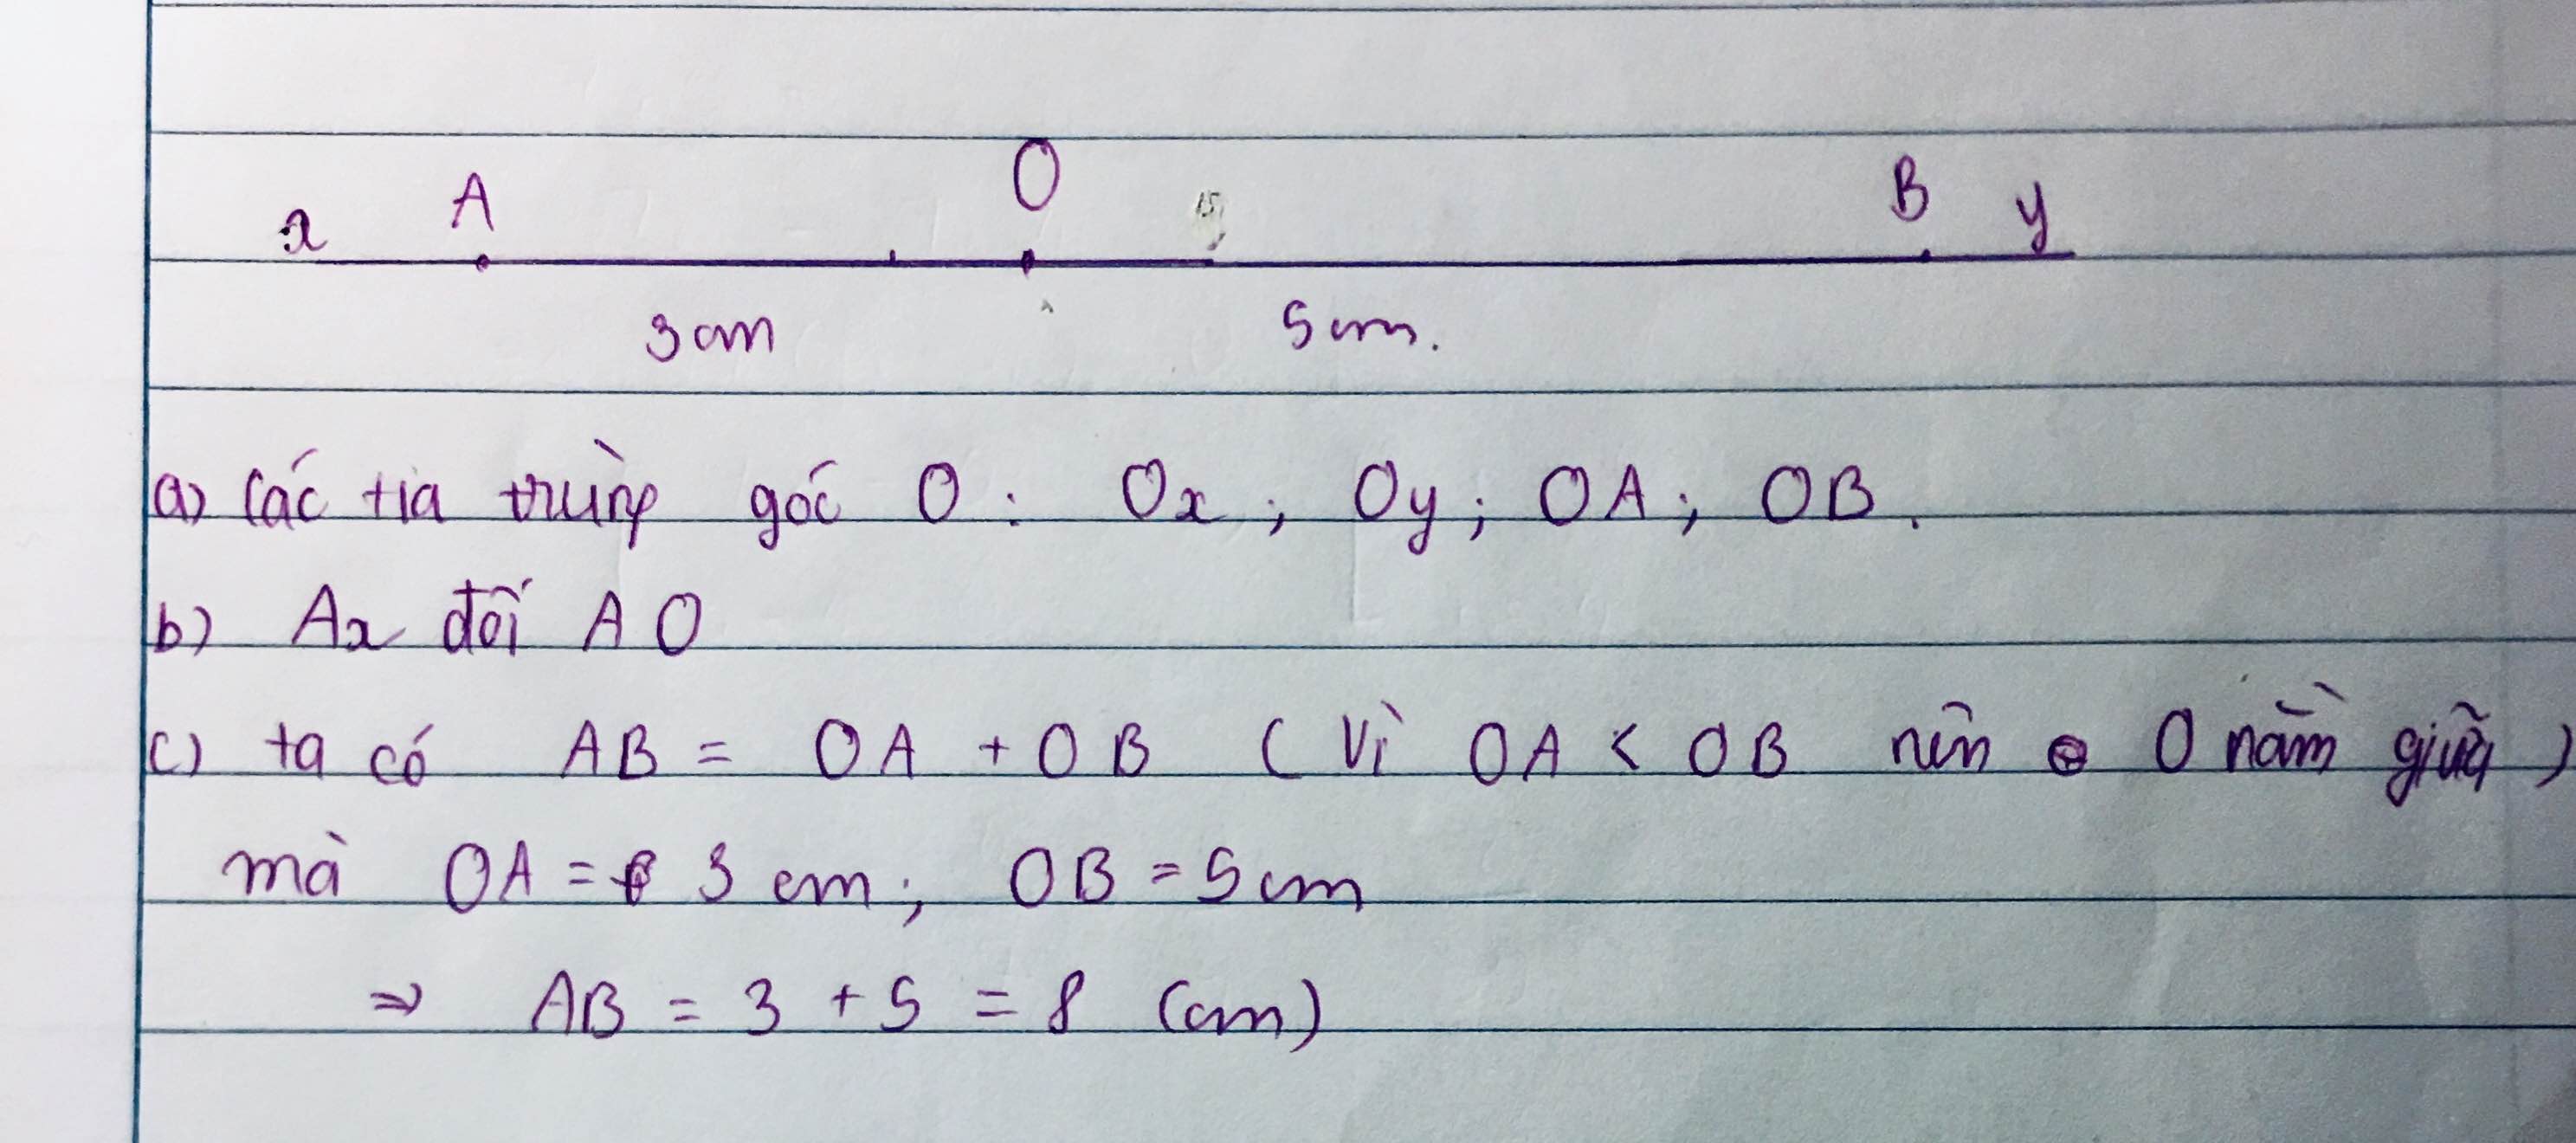 x A O B y
3cm 5cm.
a) Các tia trùng gốc O : Ox ; Oy ; OA ; OB .
b) Ax đối AO
c) ta có AB = OA + OB ( Vì OA < OB nên O nằm giữa )
mà OA = 3 cm ; OB = 5cm
⇒ AB = 3 + 5 = 8 (cm)